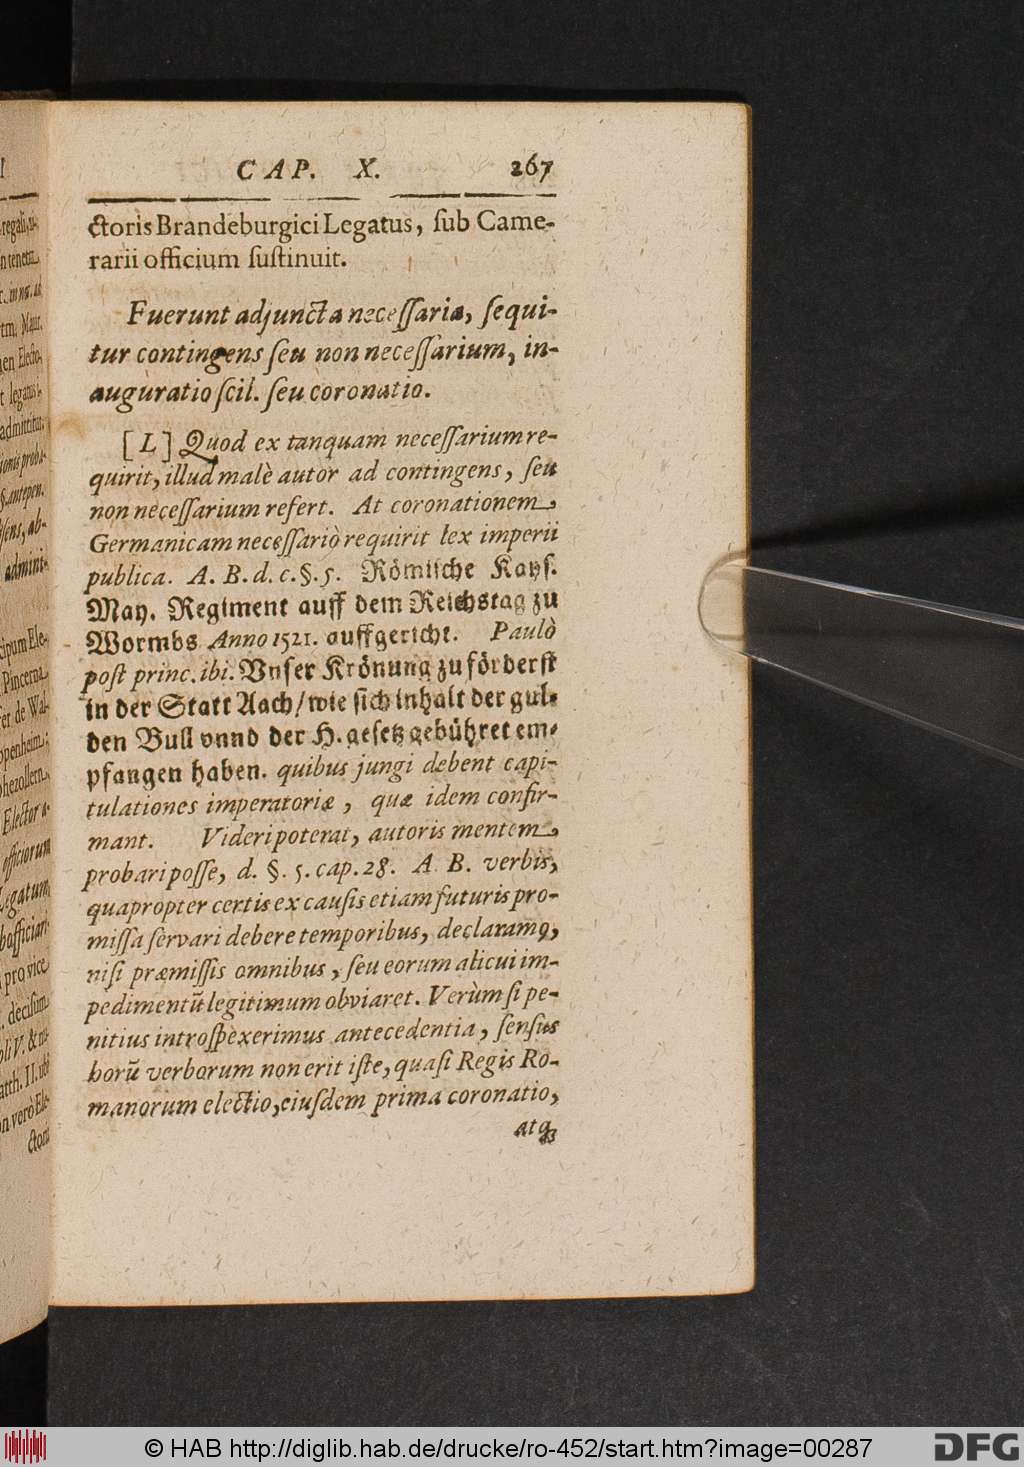 CAP. X. 267
ctoris Brandeburgici Legatus, ſub Came-
rarii officium ſuſtinuit.
Fuerunt adjuncta neceſſaria, ſequi-
tur contingens ſeu non neceſſarium, in-
auguratio ſcil. ſeu coronatio.
[L] Quod ex tanquam neceſſarium re-
quirit, illud malè autor ad contingens, ſeu
non neceſſarium refert. At coronationem
Germanicam neceſſariò requirit lex imperii
publica. A. B. d. c. §. 5. Römiſche Kayſ.
May. Regiment auff dem Reichstag zu
Wormbs Anno 1521. auffgericht. Paulò
poſt princ. ibi. Vnſer Krönung zu förderſt
in der Statt Aach/ wie ſich inhalt der gul-
den Bull vnnd der H. geſetz gebühret em-
pfangen haben. quibus jungi debent capi-
tulationes imperatoriæ, quæ idem confir-
mant. Videri poterat, autoris mentem
probari poſſe, d. §. 5. cap. 28. A. B. verbis,
quapropter certis ex cauſis etiam futuris pro-
miſſa ſervari debere temporibus, declaramꝰ,
niſi præmiſſis omnibus, ſeu eorum alicui im-
pedimentũ legitimum obviaret. Verùm ſi pe-
nitius introſpèxerimus antecedentia, ſenſus
horũ verborum non erit iſte, quaſi Regis Ro-
manorum electio, ejuſdem prima coronatio,
atq;
regali, u-
n tenetur
tm. Maur.
en Electo.
t legatus
admittitur,
ionis proba-
§. antepen.
ſens, ab-
admini-
cipum Ele-
Pincerna
fer de Wal-
openheim;
ohezollern,
Elector a-
officiorum
Legatum,
bofficiari-
pro vice
. deciſim
oli V. &
atth. II. ubi
n verò Ele-
ctoris
© HAB http://diglib.hab.de/drucke/ro-452/start.htm?image=00287
DFG